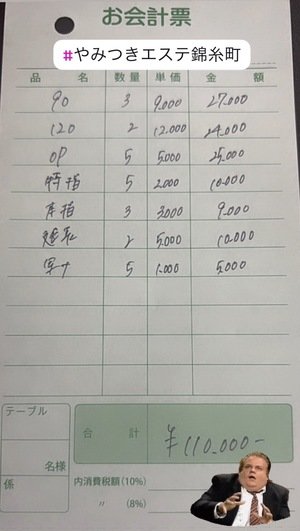 お会計票
#やみつきエステ錦糸町
品 名 数量 単価 金 額
90 3 9.000 27.000
120 2 12.000 24.000
OP 5 5.000 25.000
特指 5 2.000 10.000
本指 3 3.000 9.000
延長 2 5.000 10.000
5 1.000 5.000
テーブル
名様
係
合 計 ¥110.000-
内消費税額(10%)
〃 (8%)